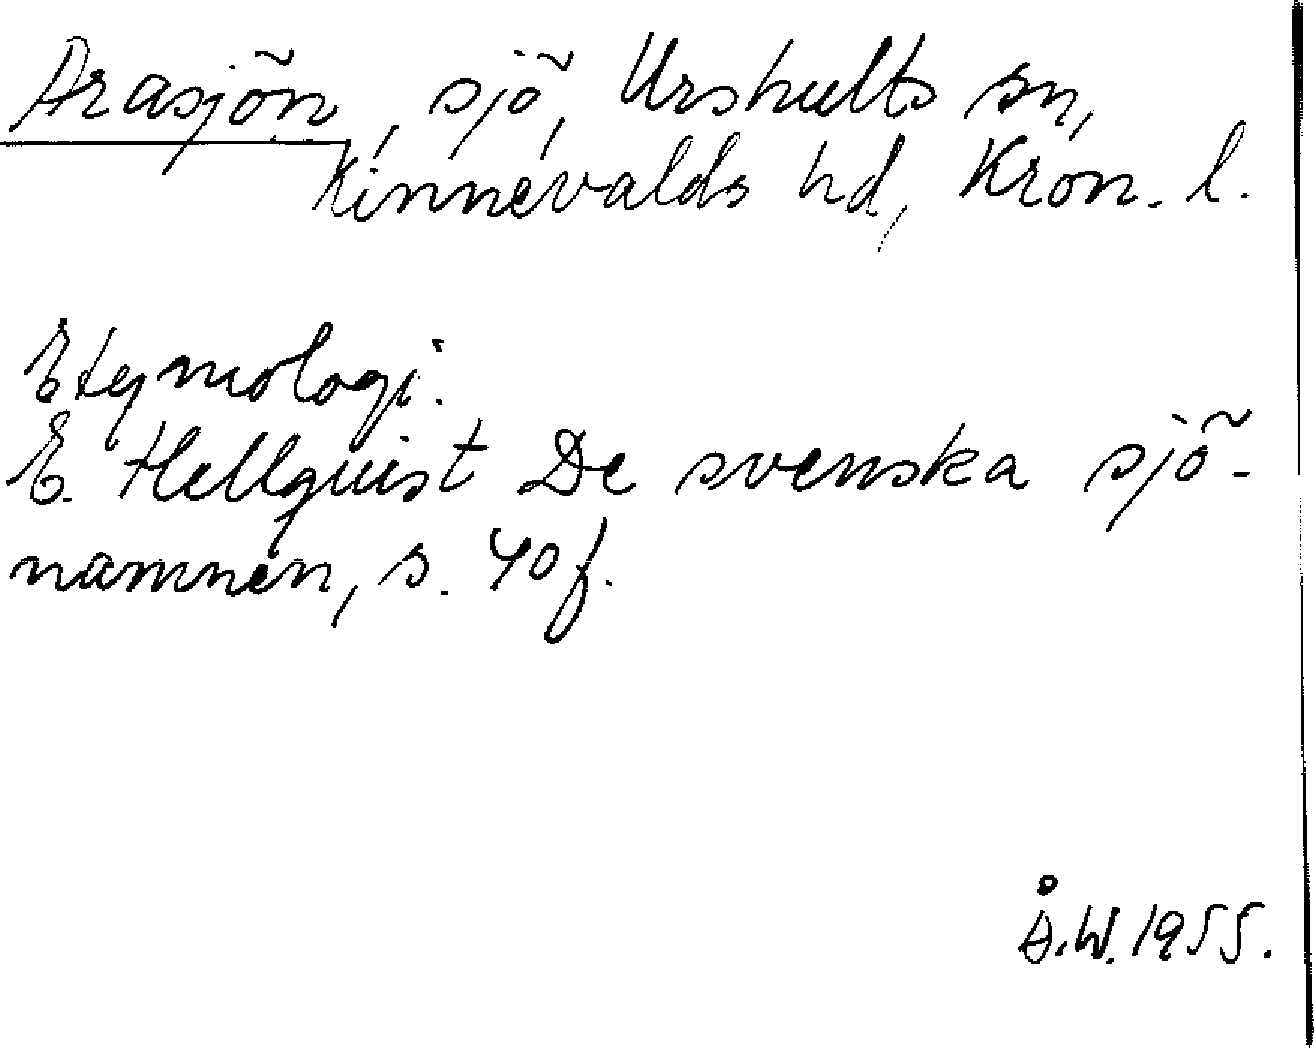 Arasjön, sjö, Urshults sn,
Kinnevalds hd, Kron. l.
Etymologi.
E. Hellquist De svenska sjö-
namnen, s. 40 f.
Å.W. 1955.